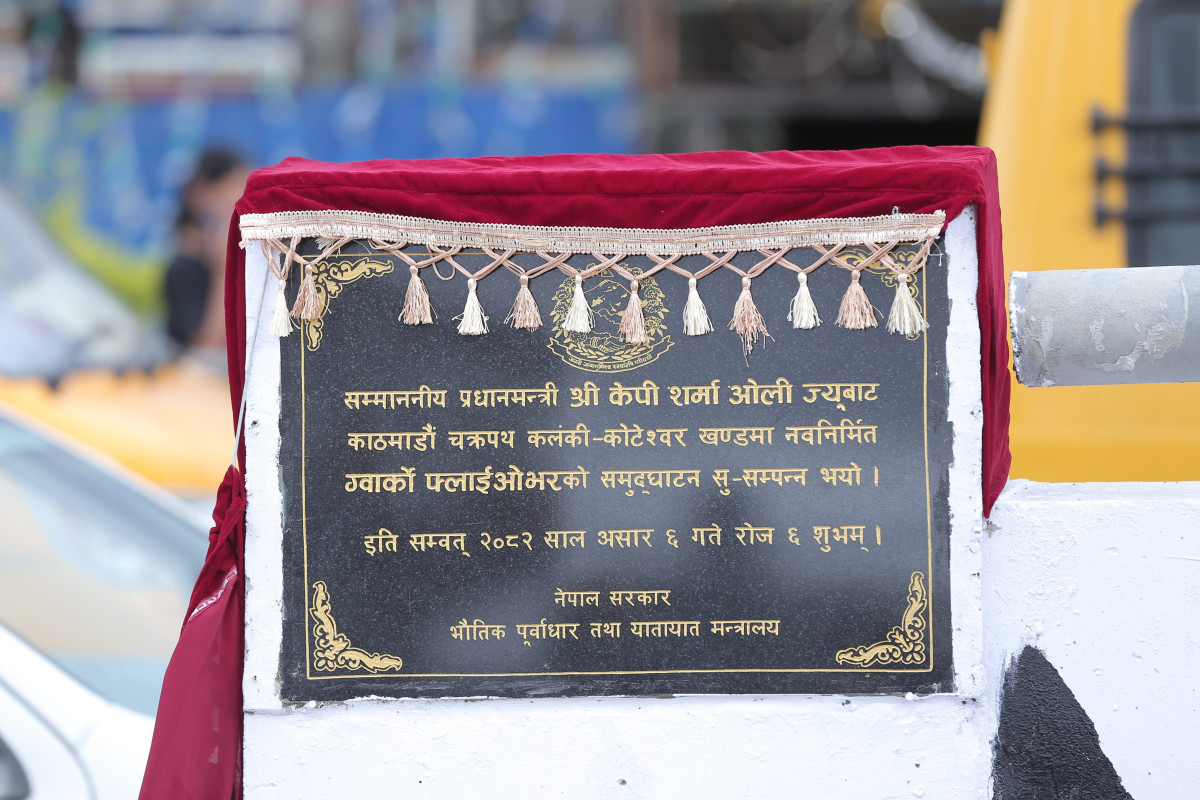 सम्माननीय प्रधानमन्त्री श्री केपी शर्मा ओली ज्यूबाट
काठमाडौं चक्रपथ कलंकी-कोटेश्वर खण्डमा नवनिर्मित
ग्वार्को फ्लाईओभरको समुद्घाटन सु-सम्पन्न भयो ।
इति सम्वत् २०८२ साल असार ६ गते रोज ६ शुभम् ।
नेपाल सरकार
भौतिक पूर्वाधार तथा यातायात मन्त्रालय